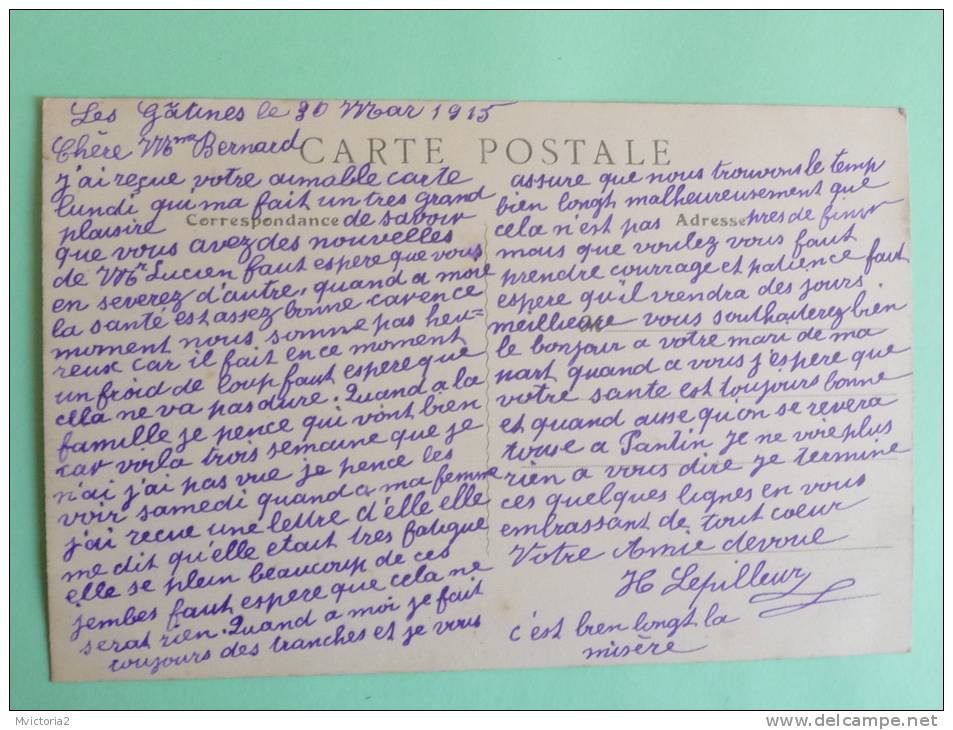 Les Gâtines le 30 Mar 1915
Chère Mme Bernard
CARTE POSTALE
Correspondance
Adresse
j'ai reçue votre aimable carte
lundi qui ma fait un tres grand
plaisire de savoir
que vous avez des nouvelles
de Mr Lucien faut espere que vous
en severez d'autre, quand a moie
la santé est assez bonne carence
moment nous somme pas heu=
reux car il fait en ce moment
un froid de loup faut espere que
cela ne va pas dure. Quand a la
famille je pence qui vont bien
car voila trois semaine que je
n'ai j'ai pas vue je pence les
voir samedi quand a ma femme
j'ai reçue une lettre d'elle elle
me dit qu'elle etait tres fatigue
elle se plein beaucoup de ces
jembes faut espere que cela ne
serat rien. Quand a moi je fait
toujours des tranches et je vous
assure que nous trouvons le temp
bien longt, malheureusement que
cela n'est pas pres de finir
mais que voulez vous faut
prendre courrage et patience faut
espere qu'il viendra des jours
meilleure vous souhaiterez bien
le bonjour a votre mari de ma
part quand a vous j'espere que
votre sante est toujours bonne
et quand ausse qu'on se revera
touse a Pantin je ne voie plus
rien a vous dire je termine
ces quelques lignes en vous
embrassant de tout coeur
Votre Amie devoue
H Lepilleur
c'est bien longt la
misère
Mvictoria2
www.delcampe.net